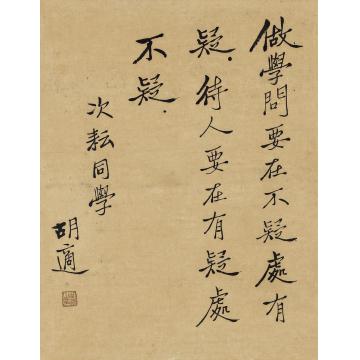 做學問要在不疑處有
疑.待人要在有疑處
不疑.
次耘同學
胡適